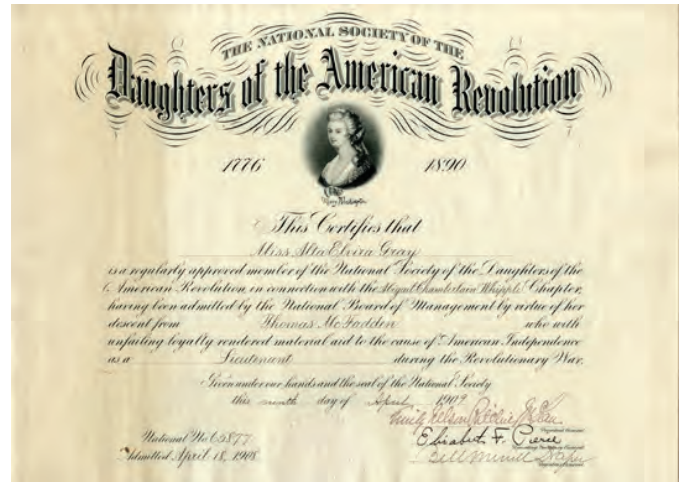 THE NATIONAL SOCIETY OF THE
Daughters of the American Revolution
1776 1890
This Certifies that
Miss Alta Elvira Gray
is a regularly approved member of the National Society of the Daughters of the
American Revolution, in connection with the Abigail Chamberlain Whipple Chapter,
having been admitted by the National Board of Management by virtue of her
descent from Thomas McFadden who with
unfailing loyalty rendered material aid to the cause of American Independence
as a Lieutenant during the Revolutionary War.
Given under our hands and the seal of the National Society
this ninth day of April 1909
Emily Nelson Ritchie McLean
Elisabeth F. Pierce
National No. 65877
Admitted April 18, 1908